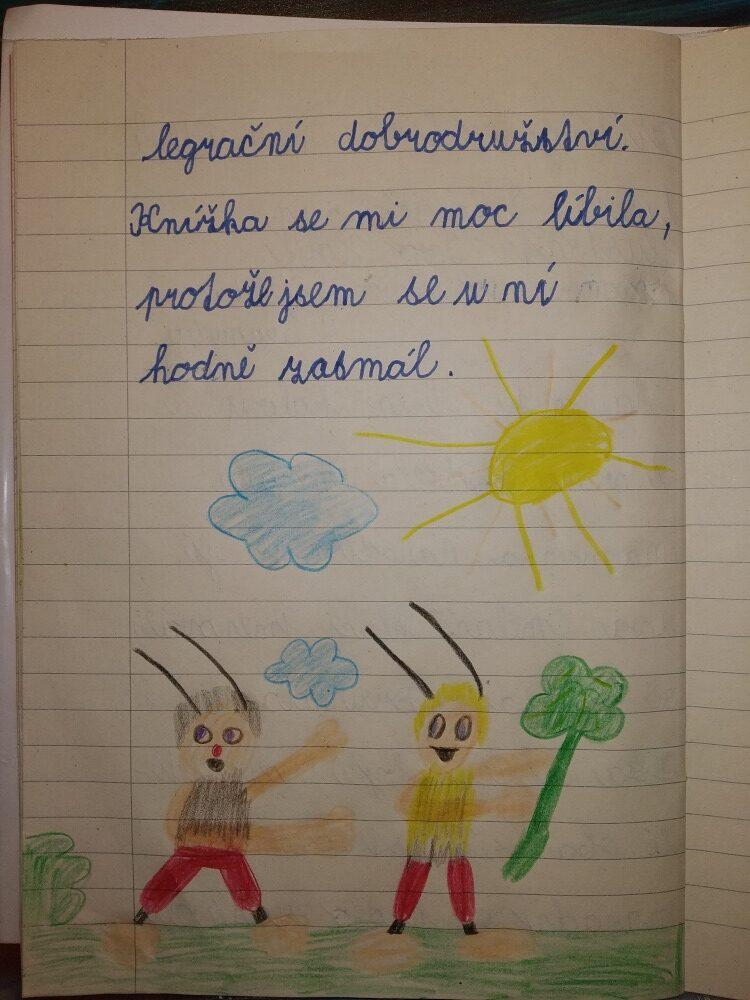 legrační dobrodružství.
Knížka se mi moc líbila,
protože jsem se u ní
hodně zasmál.